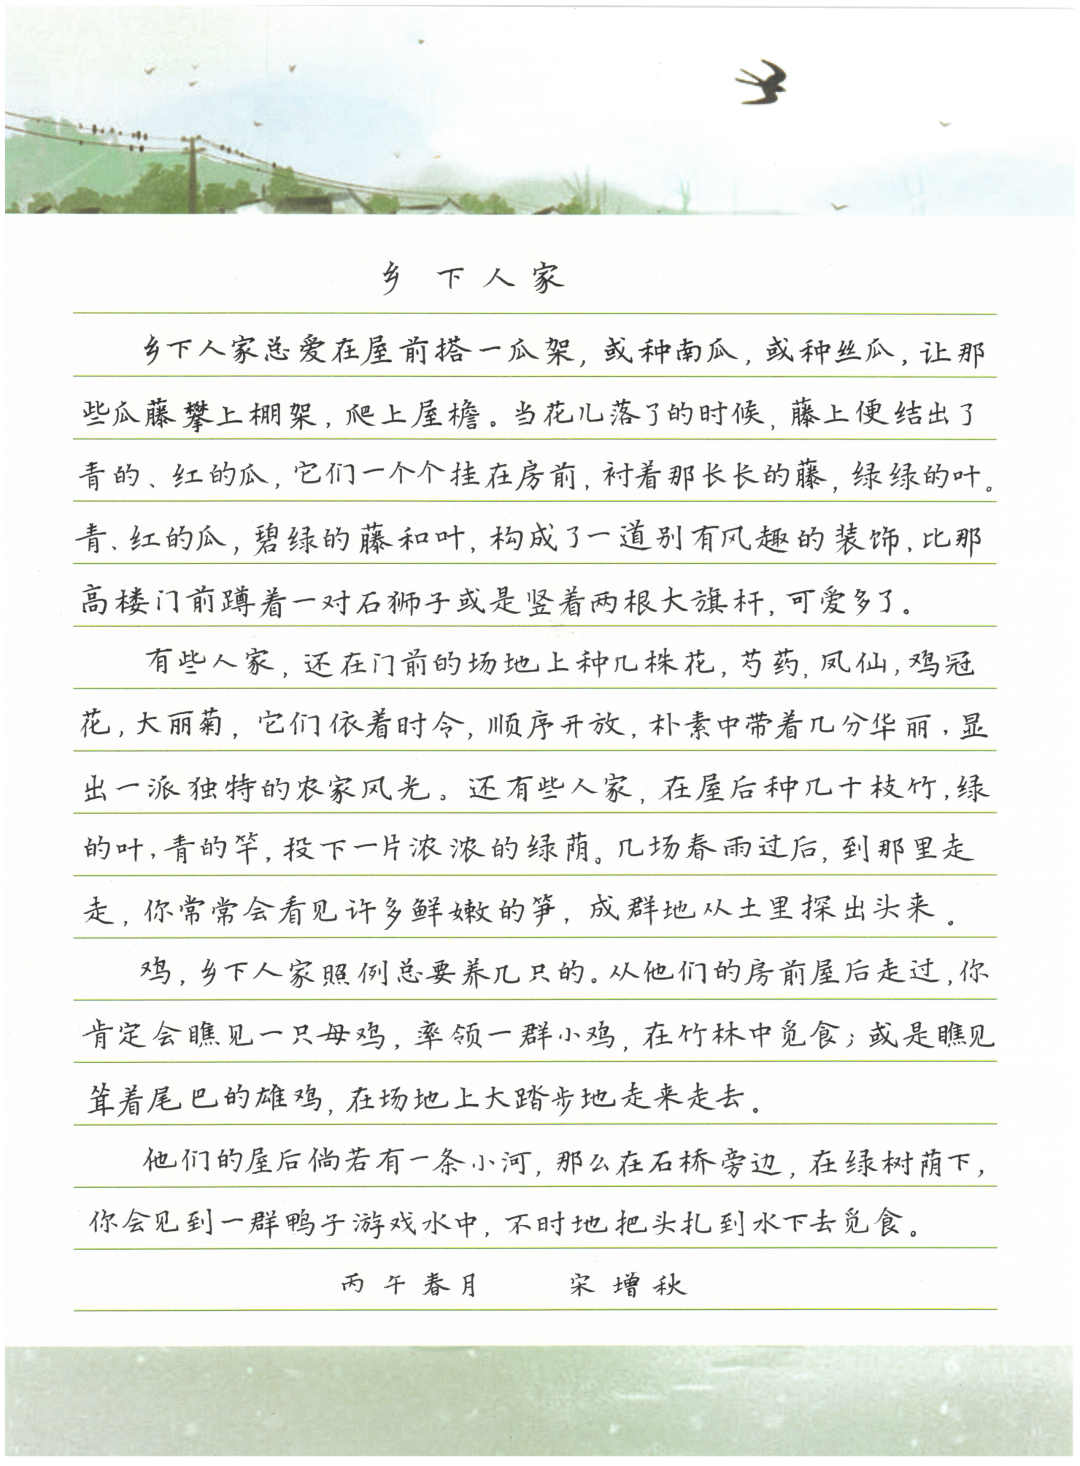 乡下人家
乡下人家总爱在屋前搭一瓜架，或种南瓜，或种丝瓜，让那
些瓜藤攀上棚架，爬上屋檐。当花儿落了的时候，藤上便结出了
青的、红的瓜，它们一个个挂在房前，衬着那长长的藤，绿绿的叶。
青、红的瓜，碧绿的藤和叶，构成了一道别有风趣的装饰，比那
高楼门前蹲着一对石狮子或是竖着两根大旗杆，可爱多了。
有些人家，还在门前的场地上种几株花，芍药，凤仙，鸡冠
花，大丽菊，它们依着时令，顺序开放，朴素中带着几分华丽，显
出一派独特的农家风光。还有些人家，在屋后种几十枝竹，绿
的叶，青的竿，投下一片浓浓的绿荫。几场春雨过后，到那里走
走，你常常会看见许多鲜嫩的笋，成群地从土里探出头来。
鸡，乡下人家照例总要养几只的。从他们的房前屋后走过，你
肯定会瞧见一只母鸡，率领一群小鸡，在竹林中觅食；或是瞧见
耸着尾巴的雄鸡，在场地上大踏步地走来走去。
他们的屋后倘若有一条小河，那么在石桥旁边，在绿树荫下，
你会见到一群鸭子游戏水中，不时地把头扎到水下去觅食。
丙午春月 宋增秋